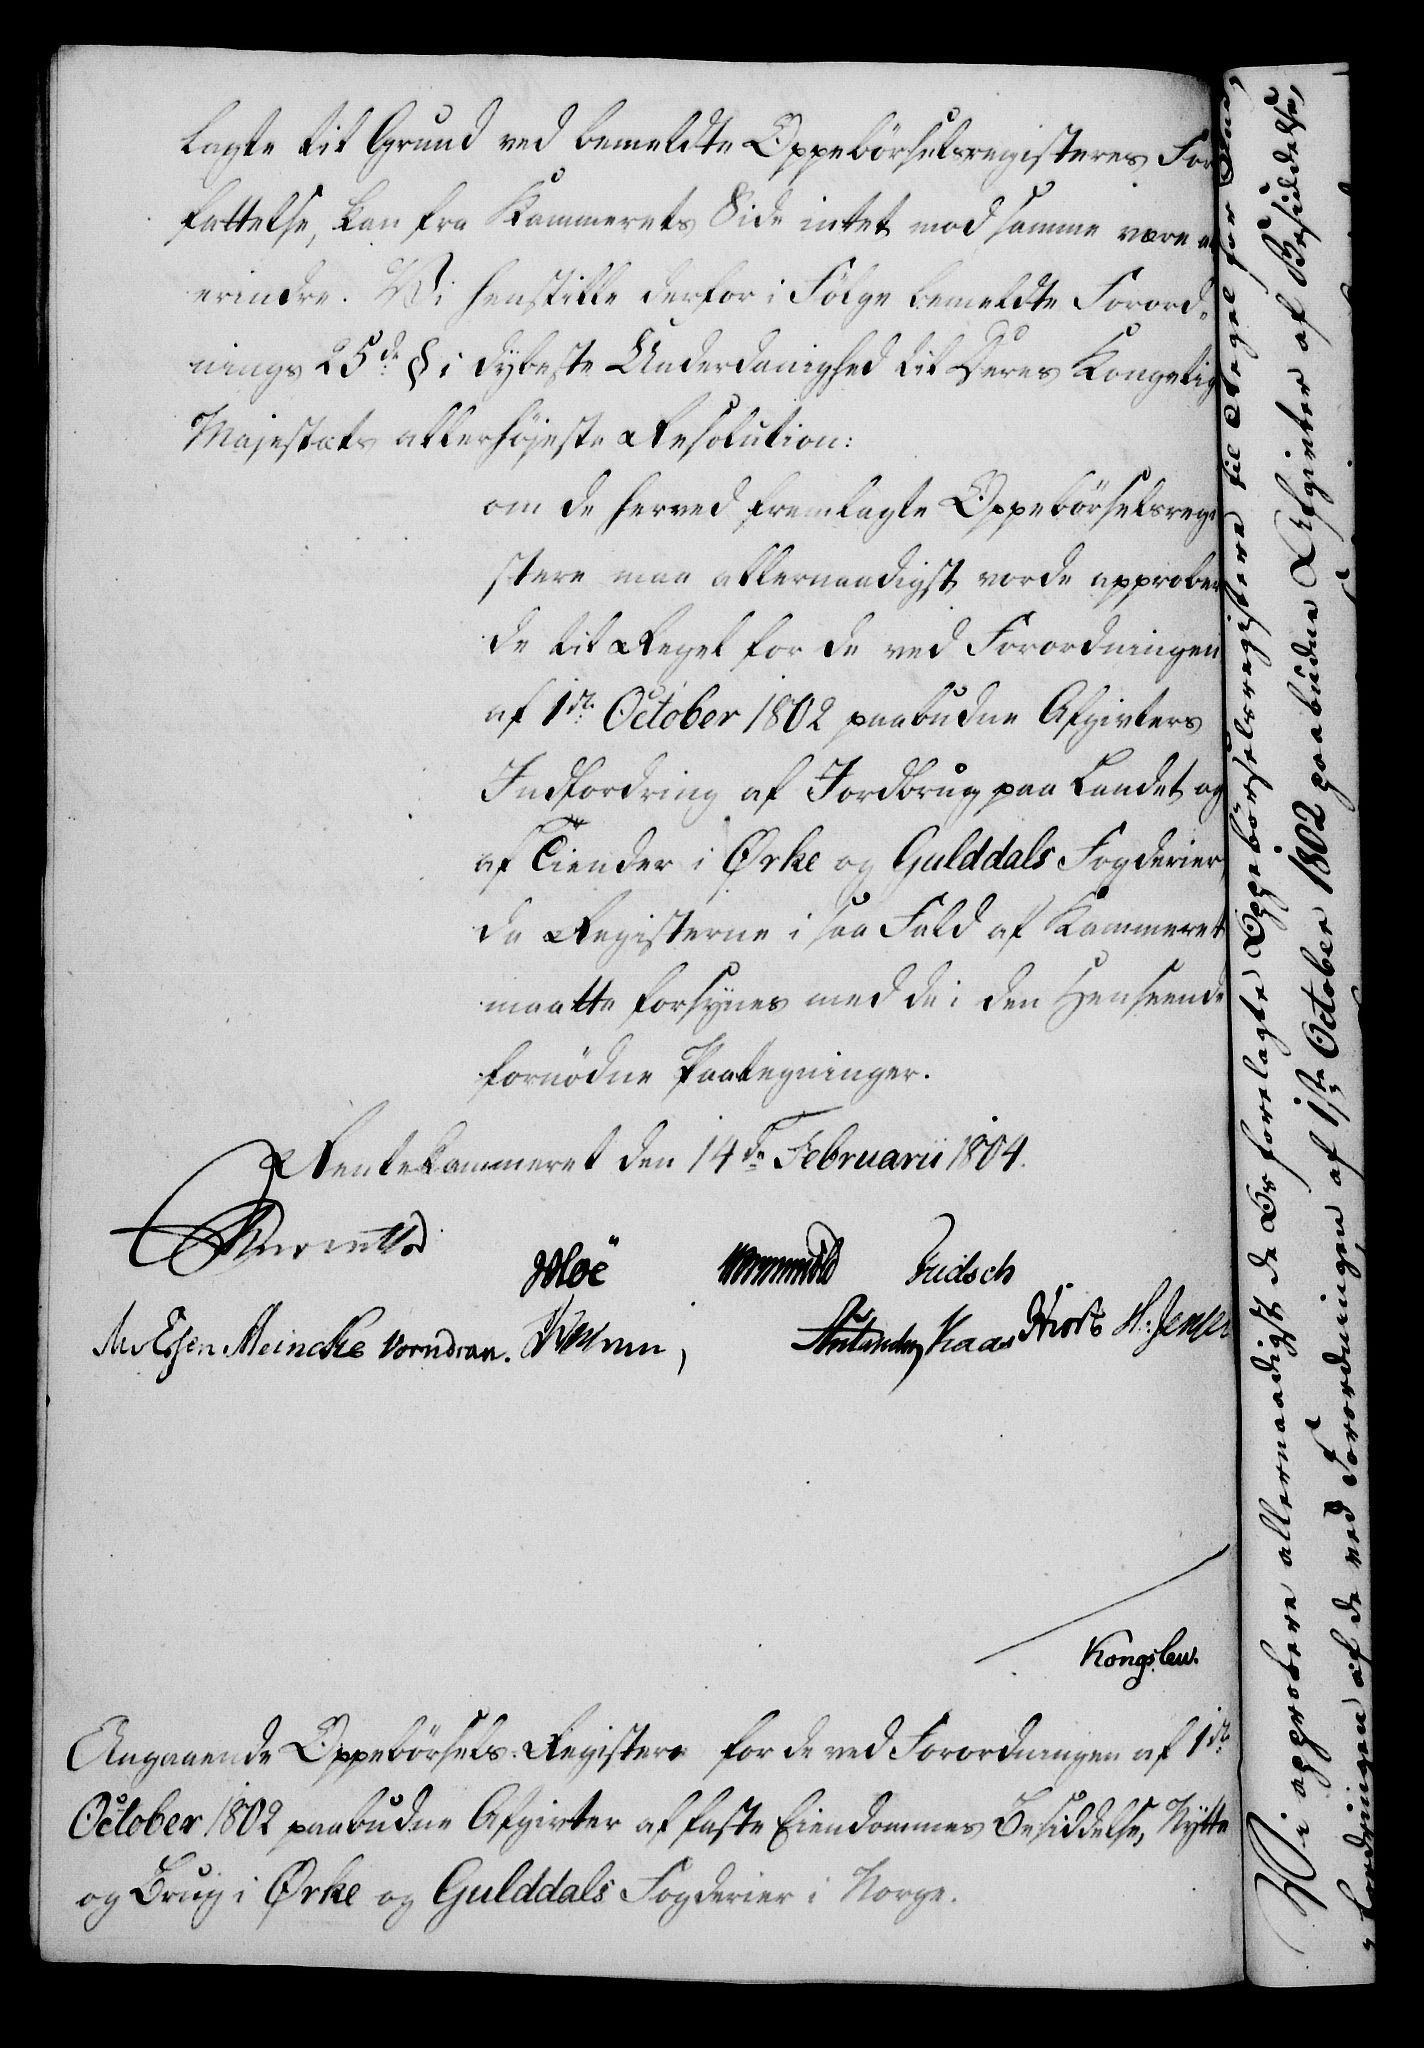 lagte til Grund ved bemeldte Oppebörselsregisteres For
fattelse, kan fra Kammerets Side intet mod samme være at
erindre. Vi henstille derfor i Følge bemeldte Forord-
nings 25de § i dybeste Underdanighed til Deres Kongelig
Majestæts allerhöjeste Resolution:
om de herved fremlagte Oppebörselsregi
stere maa allernaadigst vorde approbere
de til Regel for de ved Forordningen
af 1ste October 1802 paabudne Afgivters
Indfordring af Jordbrug paa Landet og
af Tiender i Ørke og Gulddals Fogderier,
da Registerne i saa Fald af Kammeret
maatte forsÿnes med de i den Henseende
fornödne Paategninger.
Rentekammeret den 14de Februarii 1804.
Reventlow
Wloë Fridsch
Meincke Vorndran. Kaas Hiort H: Jensen
Kongslew.
Angaaende Oppebörsels-Registere for de ved Forordningen af 1ste
October 1802 paabudne Afgivter af faste Eiendommes Besiddelse, Nytte
og Brug i Ørke og Gulddals Fogderier i Norge.
Vi approbere allernaadigst de Os forelagte Oppebörselsregistere til Regel for
fordringen af de ved Forordningen af 1ste October 1802 paabudne Afgivter af Besiddelse,